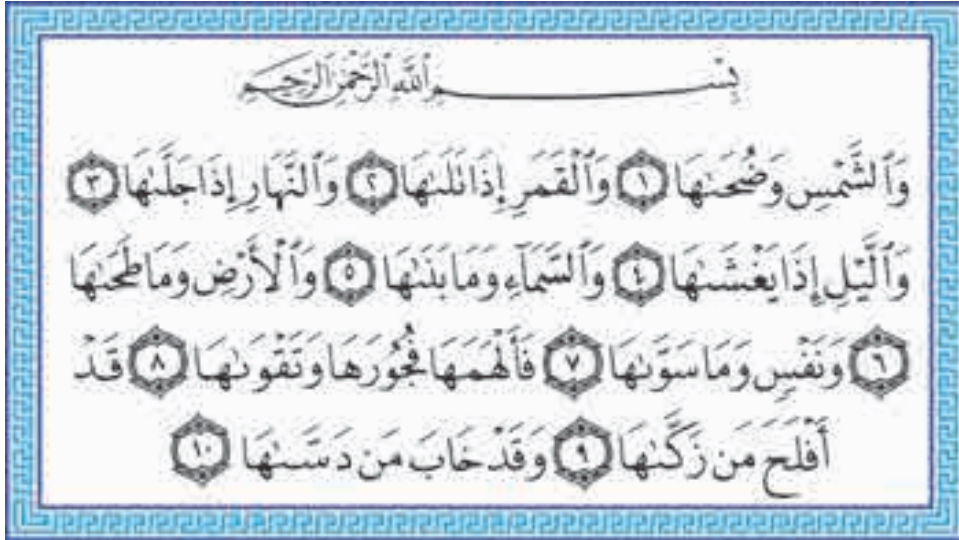 بِسْمِ ٱللَّهِ ٱلرَّحْمَٰنِ ٱلرَّحِيمِ
وَٱلشَّمْسِ وَضُحَىٰهَا ١ وَٱلْقَمَرِ إِذَا تَلَىٰهَا ٢ وَٱلنَّهَارِ إِذَا جَلَّىٰهَا ٣
وَٱلَّيْلِ إِذَا يَغْشَىٰهَا ٤ وَٱلسَّمَآءِ وَمَا بَنَىٰهَا ٥ وَٱلْأَرْضِ وَمَا طَحَىٰهَا
٦ وَنَفْسٍ وَمَا سَوَّىٰهَا ٧ فَأَلْهَمَهَا فُجُورَهَا وَتَقْوَىٰهَا ٨ قَدْ
أَفْلَحَ مَن زَكَّىٰهَا ٩ وَقَدْ خَابَ مَن دَسَّىٰهَا ١٠